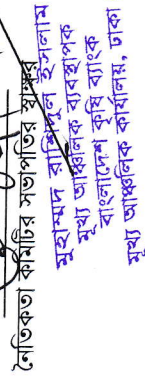 নৈতিকতা কমিটির সভাপতির স্বাক্ষর
মুহাম্মদ রাশিদুল ইসলাম
মুখ্য আঞ্চলিক ব্যবস্থাপক
বাংলাদেশ কৃষি ব্যাংক
মুখ্য আঞ্চলিক কার্যালয়, ঢাকা